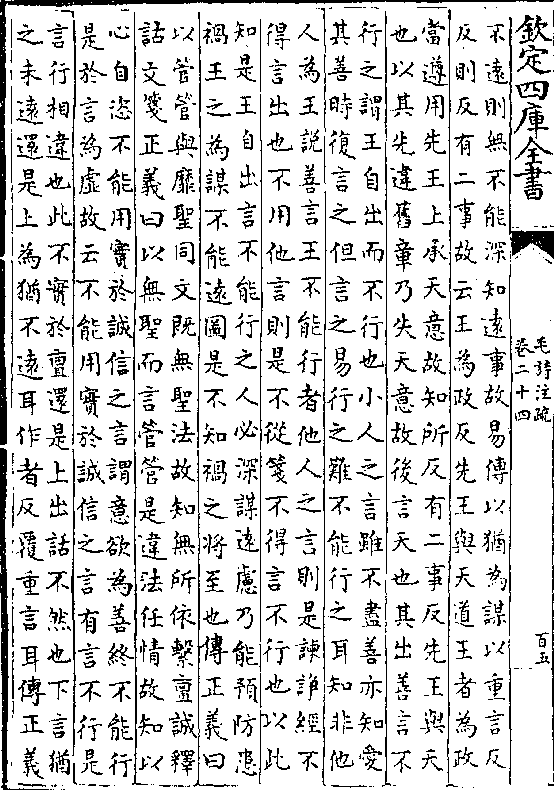 欽定四庫全書
毛詩注疏
卷二十四
百五
不遠則無不能深知遠事故易傳以猶為謀以重言反
反則反有二事故云王為政反先王與天道王者為政
當遵用先王上承天意故知所反有二事反先王與天
也以其先違舊章乃失天意故後言天也其出善言不
行之謂王自出而不行也小人之言雖不盡善亦知愛
其善時復言之但言之易行之難不能行之耳知非他
人為王說善言王不能行者他人之言則是諫諍經不
得言出也不用他言則是不從箋不得言不行也以此
知是王自出言不能行之人必深謀遠慮乃能預防患
禍王之為謀不能遠圖是不知禍之將至也傳正義曰
以管管與靡聖同文既無聖法故知無所依繫亶誠釋
詁文箋正義曰以無聖而言管管是違法任情故知以
心自恣不能用實於誠信之言謂意欲為善終不能行
是於言為虛故云不能用實於誠信之言有言不行是
言行相違也此不實於亶還是上出話不然也下言猶
之未遠還是上為猶不遠耳作者反覆重言耳傳正義